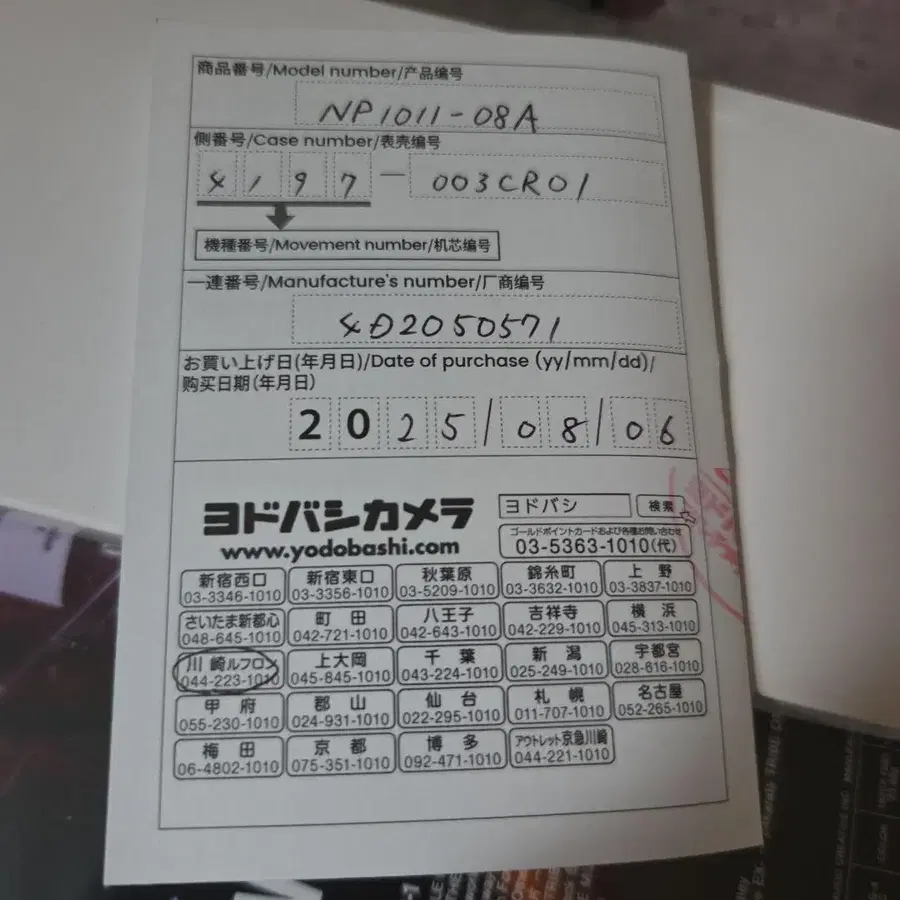 商品番号/Model number/产品编号
NP1011-08A
側番号/Case number/表壳编号
4197-003CR01
機種番号/Movement number/机芯编号
一連番号/Manufacture's number/厂商编号
4D2050571
お買い上げ日(年月日)/Date of purchase (yy/mm/dd)/
购买日期(年月日)
2025/08/06
ヨドバシカメラ
www.yodobashi.com
ヨドバシ 検索
ゴールドポイントカードおよび各種お問い合わせ
03-5363-1010(代)
新宿西口 新宿東口 秋葉原 錦糸町 上野
03-3346-1010 03-3356-1010 03-5209-1010 03-3632-1010 03-3837-1010
さいたま新都心 町田 八王子 吉祥寺 横浜
048-645-1010 042-721-1010 042-643-1010 042-229-1010 045-313-1010
川崎ルフロン 上大岡 千葉 新潟 宇都宮
044-223-1010 045-845-1010 043-224-1010 025-249-1010 028-616-1010
甲府 郡山 仙台 札幌 名古屋
055-230-1010 024-931-1010 022-295-1010 011-707-1010 052-265-1010
梅田 京都 博多 アウトレット京急川崎
06-4802-1010 075-351-1010 092-471-1010 044-221-1010